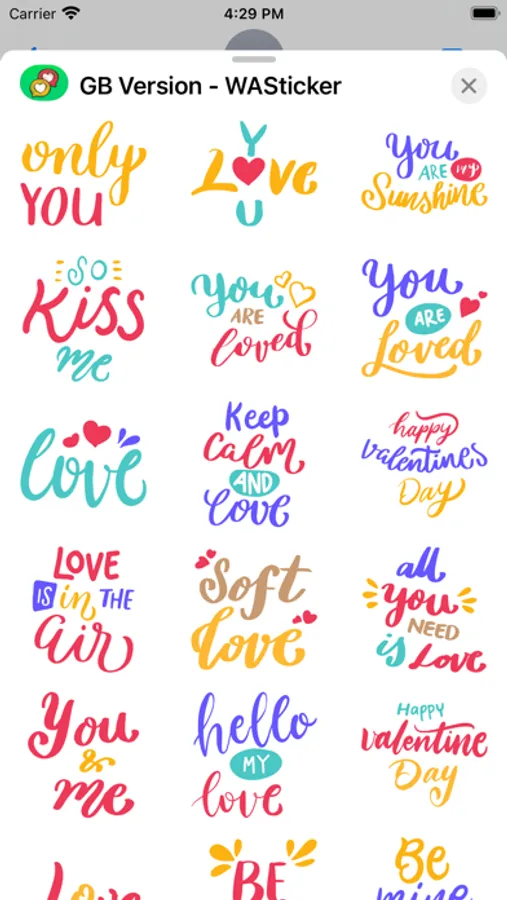 Carrier 4:29 PM
GB Version - WASticker
only
YOU
Y
Love
U
You
ARE my
Sunshine
So
Kiss
me
You
ARE
loved
You
ARE
Loved
love
Keep
Calm
AND
love
happy
valentine's
Day
LOVE
IS in THE
air
Soft
love
all
you
NEED
is Love
You
&
me
hello
MY
love
Happy
valentine
Day
Love
BE
Be
mine